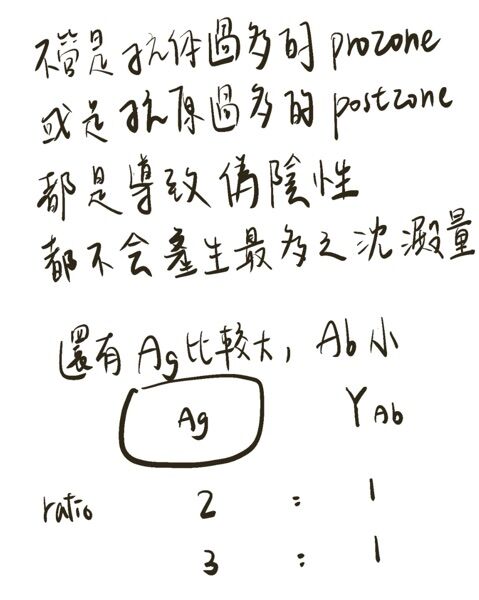 不管是抗体過多的 prozone
或是抗原過多的 postzone
都是導致偽陰性
都不会產生最多之沈澱量
還有 Ag 比較大，Ab 小
Ag Y Ab
ratio 2 : 1
3 : 1